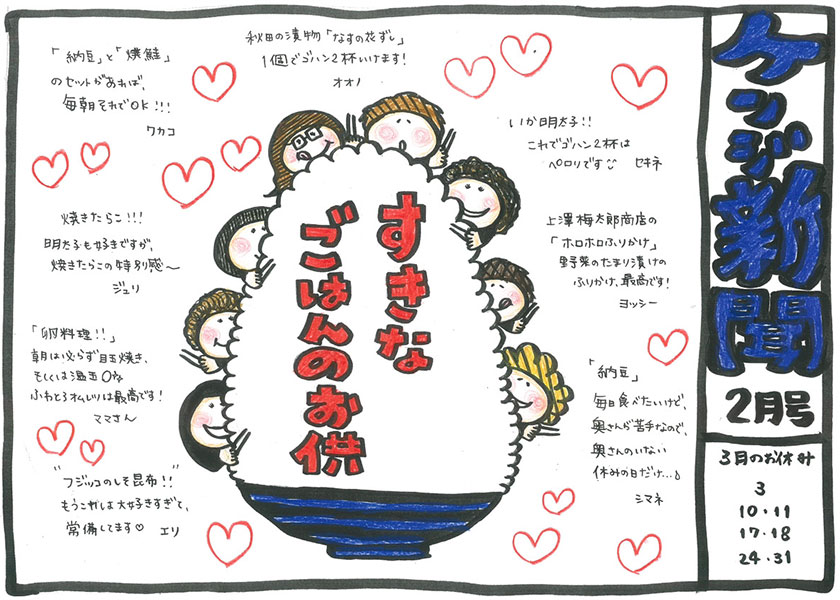 ケンジ新聞
2月号
3月のお休み
3
10・11
17・18
24・31
すきな
ごはんのお供
秋田の漬物「なすの花ずし」
1個でゴハン2杯いけます!
オオノ
「納豆」と「焼鮭」
のセットがあれば、
毎朝それでOK!!!
ワカコ
いか明太子!!
これでゴハン2杯は
ペロリです
セキネ
焼きたらこ!!!
明太子も好きですが、
焼きたらこの特別感〜
ジュリ
上澤梅太郎商店の
「ホロホロふりかけ」
野菜のたまり漬けの
ふりかけ、最高です!
ヨッシー
「卵料理!!」
朝は必らず目玉焼き、
もしくは温玉
ふわとろオムレツは最高です!
ママさん
「納豆」
毎日食べたいけど、
奥さんが苦手なので、
奥さんのいない
休みの日だけ…
シマネ
"フジッコのしそ昆布!!"
もうこれは大好きすぎて、
常備してます♡
エリ